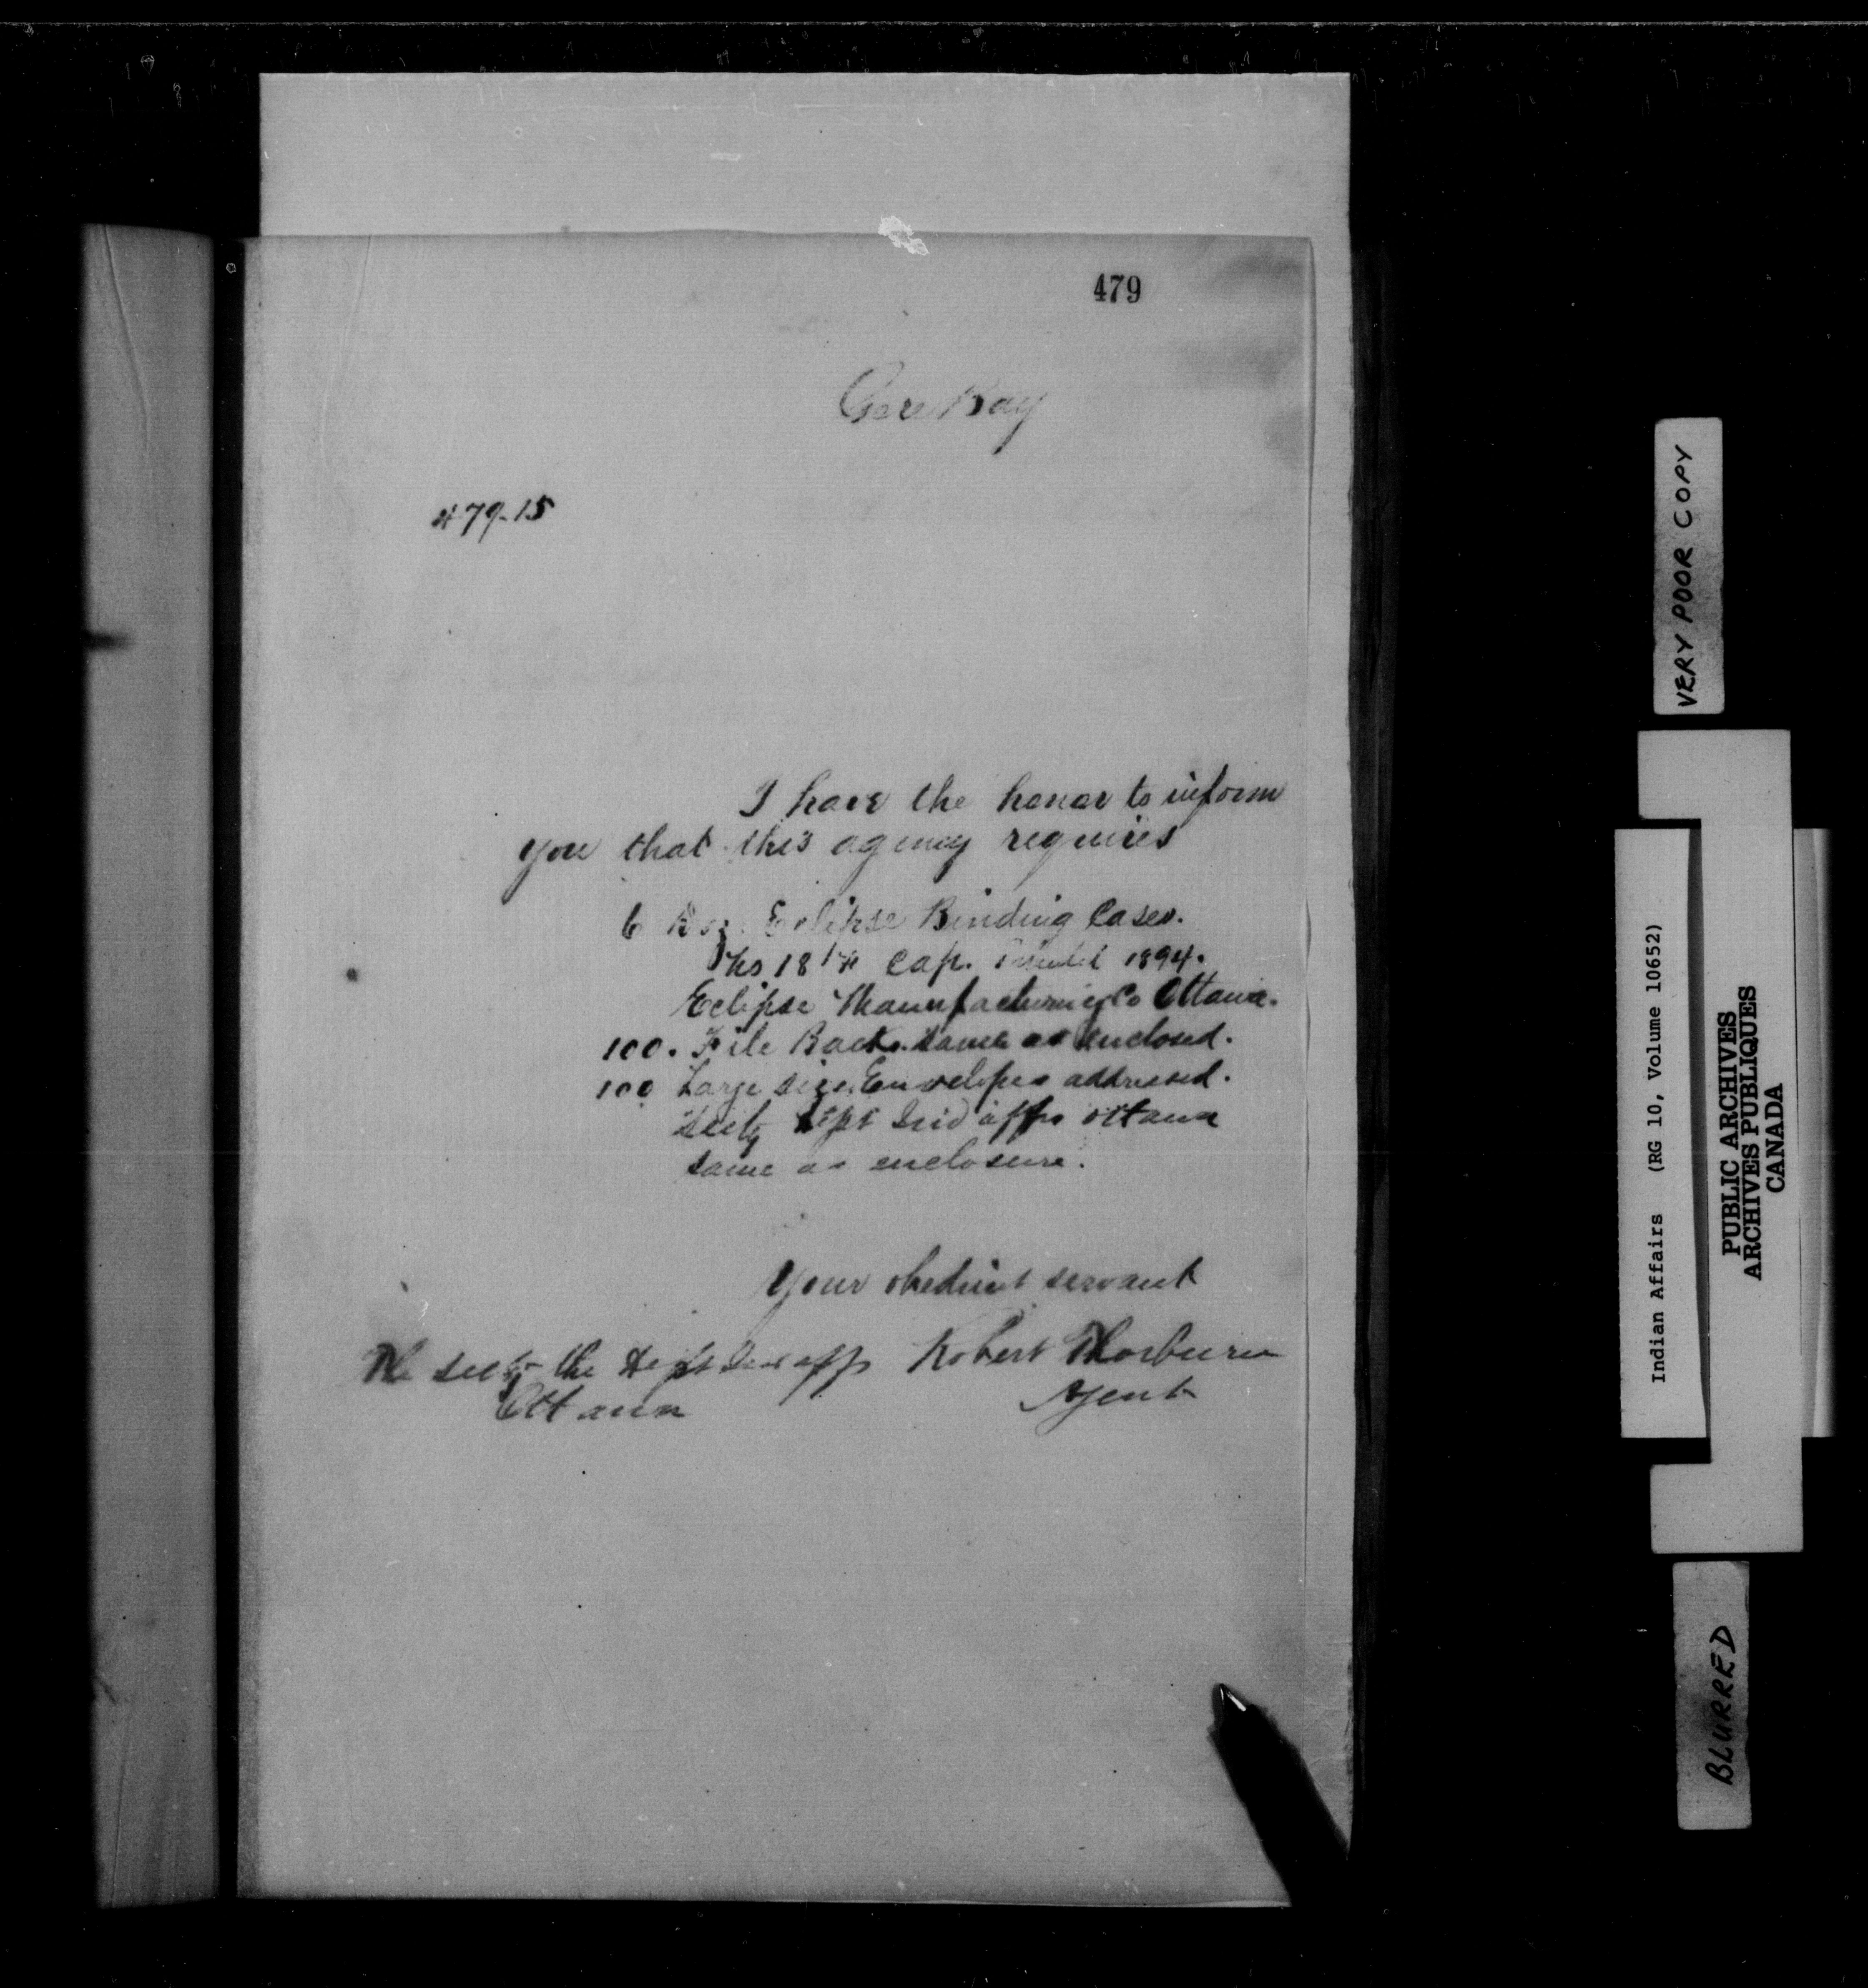 479
Gore Bay
479-15
I have the honor to inform
you that this agency requires
6 Doz. Eclipse Binding Cases.
No 18 Cap. 1894.
Eclipse Manufacturing Co Ottawa.
100. File Backs. same as enclosed.
100 Large size Envelopes addressed.
Secty Dept Ind affrs Ottawa
same as enclosure.
Your obedient servant
The Secty the Dept Ind affs Robert Thorburn
Ottawa Agent
VERY POOR COPY
Indian Affairs (RG 10, Volume 10652)
PUBLIC ARCHIVES
ARCHIVES PUBLIQUES
CANADA
BLURRED